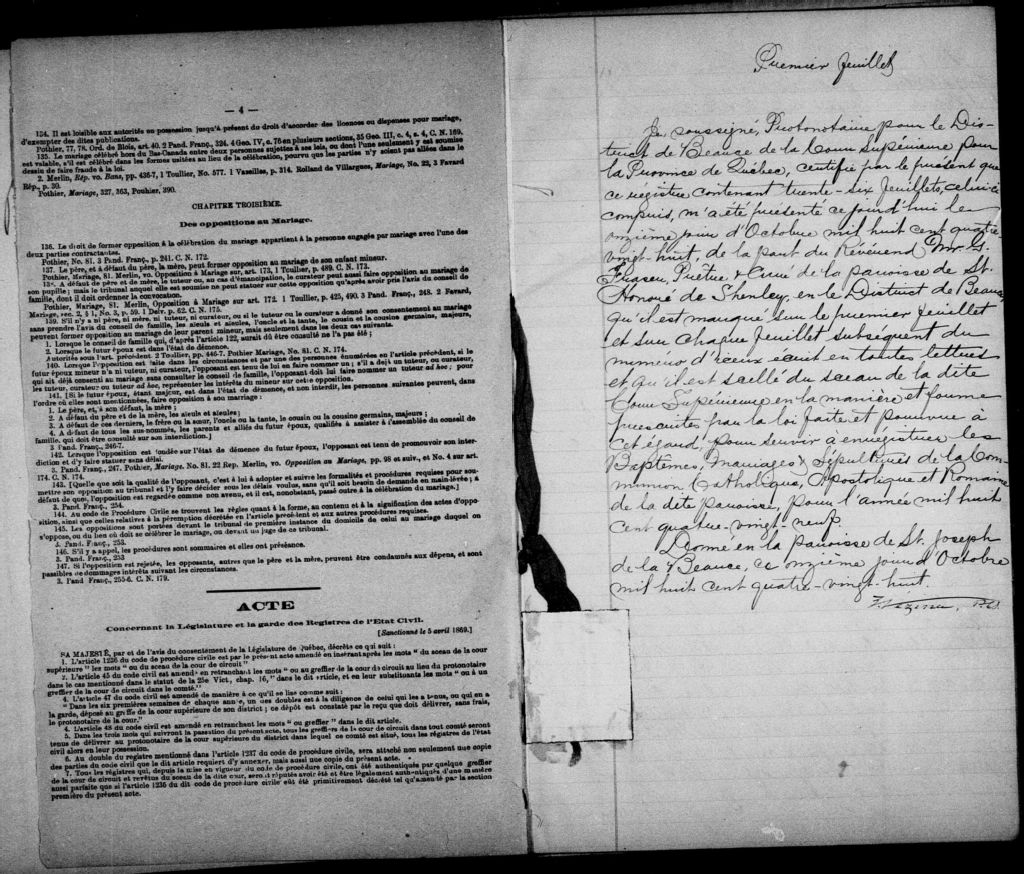 — 4 —
134. Il est loisible aux autorités en possession jusqu'à présent du droit d'accorder des licences ou dispenses pour mariage,
d'exempter des dites publications.
Pothier, 77, 78. Ord. de Blois, art. 40. 2 Pand. Franç., 324. 4 Geo. IV, c. 76 en plusieurs sections, 35 Geo. III, c. 4, s. 4, C. N. 169.
135. Le mariage célébré hors du Bas-Canada entre deux personnes sujettes à ses lois, ou dont l'une seulement y est soumise
est valable, s'il est célébré dans les formes usitées au lieu de la célébration, pourvu que les parties n'y soient pas allées dans le
dessin de faire fraude à la loi.
2. Merlin, Rép. vo. Bans, pp. 436-7, 1 Toullier, No. 577. 1 Vazeilles, p. 314. Rolland de Villargues, Mariage, No. 22, 3 Favard
Rép., p. 39.
Pothier, Mariage, 327, 363, Pouhier, 390.
CHAPITRE TROISIÈME.
Des oppositions au Mariage.
136. Le droit de former opposition à la célébration du mariage appartient à la personne engagée par mariage avec l'une des
deux parties contractantes.
Pothier, No. 81. 3 Pand. Franç., p. 241. C. N. 172.
137. Le père, et à défaut du père, la mère, peut former opposition au mariage de son enfant mineur.
Pothier, Mariage, 81. Merlin, vo. Opposition à Mariage sur art. 173, 1 Toullier, p. 489. C. N. 173.
138. A défaut de père et de mère, le tuteur ou, au cas d'émancipation, le curateur peut aussi faire opposition au mariage de
son pupille; mais le tribunal auquel elle est soumise ne peut statuer sur cette opposition qu'après avoir pris l'avis du conseil de
famille, dont il doit ordonner la convocation.
Pothier, Mariage, 81. Merlin, Opposition à Mariage sur art. 172. 1 Toullier, p. 425, 490. 3 Pand. Franç., 248. 2 Favard,
Mariage, sec. 2, § 1, No. 3, p. 59. 1 Delv. p. 62. C. N. 175.
139. S'il n'y a ni père, ni mère, ni tuteur, ni curateur, ou si le tuteur ou le curateur a donné son consentement au mariage
sans prendre l'avis du conseil de famille, les aïeuls et aïeules, l'oncle et la tante, le cousin et la cousine germains, majeurs,
peuvent former opposition au mariage de leur parent mineur, mais seulement dans les deux cas suivants.
1. Lorsque le conseil de famille qui, d'après l'article 122, aurait dû être consulté ne l'a pas été;
2. Lorsque le futur époux est dans l'état de démence.
Autorités sous l'art. précédent. 2 Toullier, pp. 446-7. Pothier Mariage, No. 81. C. N. 174.
140. Lorsque l'opposition est faite dans les circonstances et par une des personnes énumérées en l'article précédent, si le
futur époux mineur n'a ni tuteur, ni curateur, l'opposant est tenu de lui en faire nommer un; s'il a déjà un tuteur, ou curateur,
qui ait déjà consenti au mariage sans consulter le conseil de famille, l'opposant doit lui faire nommer un tuteur ad hoc; pour
les tuteur, curateur ou tuteur ad hoc, représenter les intérêts du mineur sur cette opposition.
141. [Si le futur époux, étant majeur, est dans l'état de démence, et non interdit, les personnes suivantes peuvent, dans
l'ordre où elles sont mentionnées, faire opposition à son mariage:
1. Le père, et, à son défaut, la mère;
2. A défaut du père et de la mère, les aïeuls et aïeules;
3. A défaut de ces derniers, le frère ou la sœur, l'oncle ou la tante, le cousin ou la cousine germains, majeurs;
4. A défaut de tous les sus-nommés, les parents et alliés du futur époux, qualifiés à assister à l'assemblée du conseil de
famille, qui doit être consulté sur son interdiction.]
3 Pand. Franç., 246-7.
142. Lorsque l'opposition est fondée sur l'état de démence du futur époux, l'opposant est tenu de promouvoir son inter-
diction et d'y faire statuer sans délai.
3. Pand. Franç., 247. Pothier, Mariage, No. 81. 22 Rep. Merlin, vo. Opposition au Mariage, pp. 98 et suiv., et No. 4 sur art.
174. C. N. 174.
143. [Quelle que soit la qualité de l'opposant, c'est à lui à adopter et suivre les formalités et procédures requises pour sou-
mettre son opposition au tribunal et l'y faire décider sous les délais voulus, sans qu'il soit besoin de demande en main-levée; à
défaut de quoi, l'opposition est regardée comme non avenue, et il est, nonobstant, passé outre à la célébration du mariage.]
3. Pand. Franç., 254.
144. Au code de Procédure Civile se trouvent les règles quant à la forme, au contenu et à la signification des actes d'oppo-
sition, ainsi que celles relatives à la péremption décrétée en l'article précédent et aux autres procédures requises.
145. Les oppositions sont portées devant le tribunal de première instance du domicile de celui au mariage duquel on
s'oppose, ou du lieu où doit se célébrer le mariage, ou devant un juge de ce tribunal.
3. Pand. Franç., 253.
146. S'il y a appel, les procédures sont sommaires et elles ont préséance.
3. Pand. Franç., 253
147. Si l'opposition est rejetée, les opposants, autres que le père et la mère, peuvent être condamnés aux dépens, et sont
passibles de dommages intérêts suivant les circonstances.
3. Pand. Franç., 255-6. C. N. 179.
ACTE
Concernant la Législature et la garde des Registres de l'Etat Civil.
[Sanctionné le 5 avril 1869.]
SA MAJESTÉ, par et de l'avis du consentement de la Législature de Québec, décrète ce qui suit:
1. L'article 1236 du code de procédure civile est par le présent acte amendé en insérant après les mots "du sceau de la cour
supérieure" les mots "ou du sceau de la cour de circuit"
2. L'article 45 du code civil est amendé en retranchant les mots "ou au greffier de la cour de circuit au lieu du protonotaire
dans le cas mentionné dans le statut de la 25e Vict., chap. 16," dans le dit article, et en leur substituants les mots "ou à un
greffier de la cour de circuit dans le comté."
4. L'article 47 du code civil est amendé de manière à ce qu'il se lise comme suit:
"Dans les six premières semaines de chaque année, un des doubles est à la diligence de celui qui les a tenus, ou qui en a
la garde, déposé au greffe de la cour supérieure de son district; ce dépôt est constaté par le reçu que doit délivrer, sans frais,
le protonotaire de la cour."
4. L'article 48 du code civil est amendé en retranchant les mots "ou greffier" dans le dit article.
5. Dans les trois mois qui suivront la passation du présent acte, tous les greffiers de la cour de circuit dans tout comté seront
tenus de délivrer au protonotaire de la cour supérieure du district dans lequel ce comté est situé, tous les registres de l'état
civil alors en leur possession.
6. Au double du registre mentionné dans l'article 1237 du code de procédure civile, sera attaché non seulement une copie
des parties du code civil que le dit article requiert d'y annexer, mais aussi une copie du présent acte.
7. Tous les régistres qui, depuis la mise en vigueur du code de procédure civile, ont été authentiqués par quelque greffier
de la cour de circuit et revêtus du sceau de la dite cour, seront réputés avoir été et être légalement authentiqués d'une manière
aussi parfaite que si l'article 1236 du dit code de procédure civile eût été primitivement décrété tel qu'amendé par la section
première du présent acte.
Premier feuillet
Je, soussigné, Protonotaire pour le Dis-
trict de Beauce de la Cour Supérieure pour
la Province de Québec, certifie par le présent que
ce régistre contenant trente-six feuillets, celui-ci
compris, m'a été présenté ce jourd'hui le
onzième jour d'Octobre mil huit cent quatre-
vingt-huit, de la part du Révérend Mr.
Fraser, Prêtre & Curé de la paroisse de St.
Honoré de Shenley, en le District de Beauce
qu'il est marqué sur le premier feuillet
et sur chaque feuillet subséquent du
numéro d'iceux écrit en toutes lettres
et qu'il est scellé du sceau de la dite
Cour Supérieure en la manière et forme
prescrites par la loi faite et pourvue à
cet égard, pour servir à enrégistrer les
Baptêmes, Mariages & Sépultures de la Com-
munion Catholique, Apostolique et Romaine
de la dite paroisse, pour l'année mil huit
cent quatre-vingt-neuf.
Donné en la paroisse de St. Joseph
de la Beauce, ce onzième jour d'Octobre
mil huit cent quatre-vingt-huit.